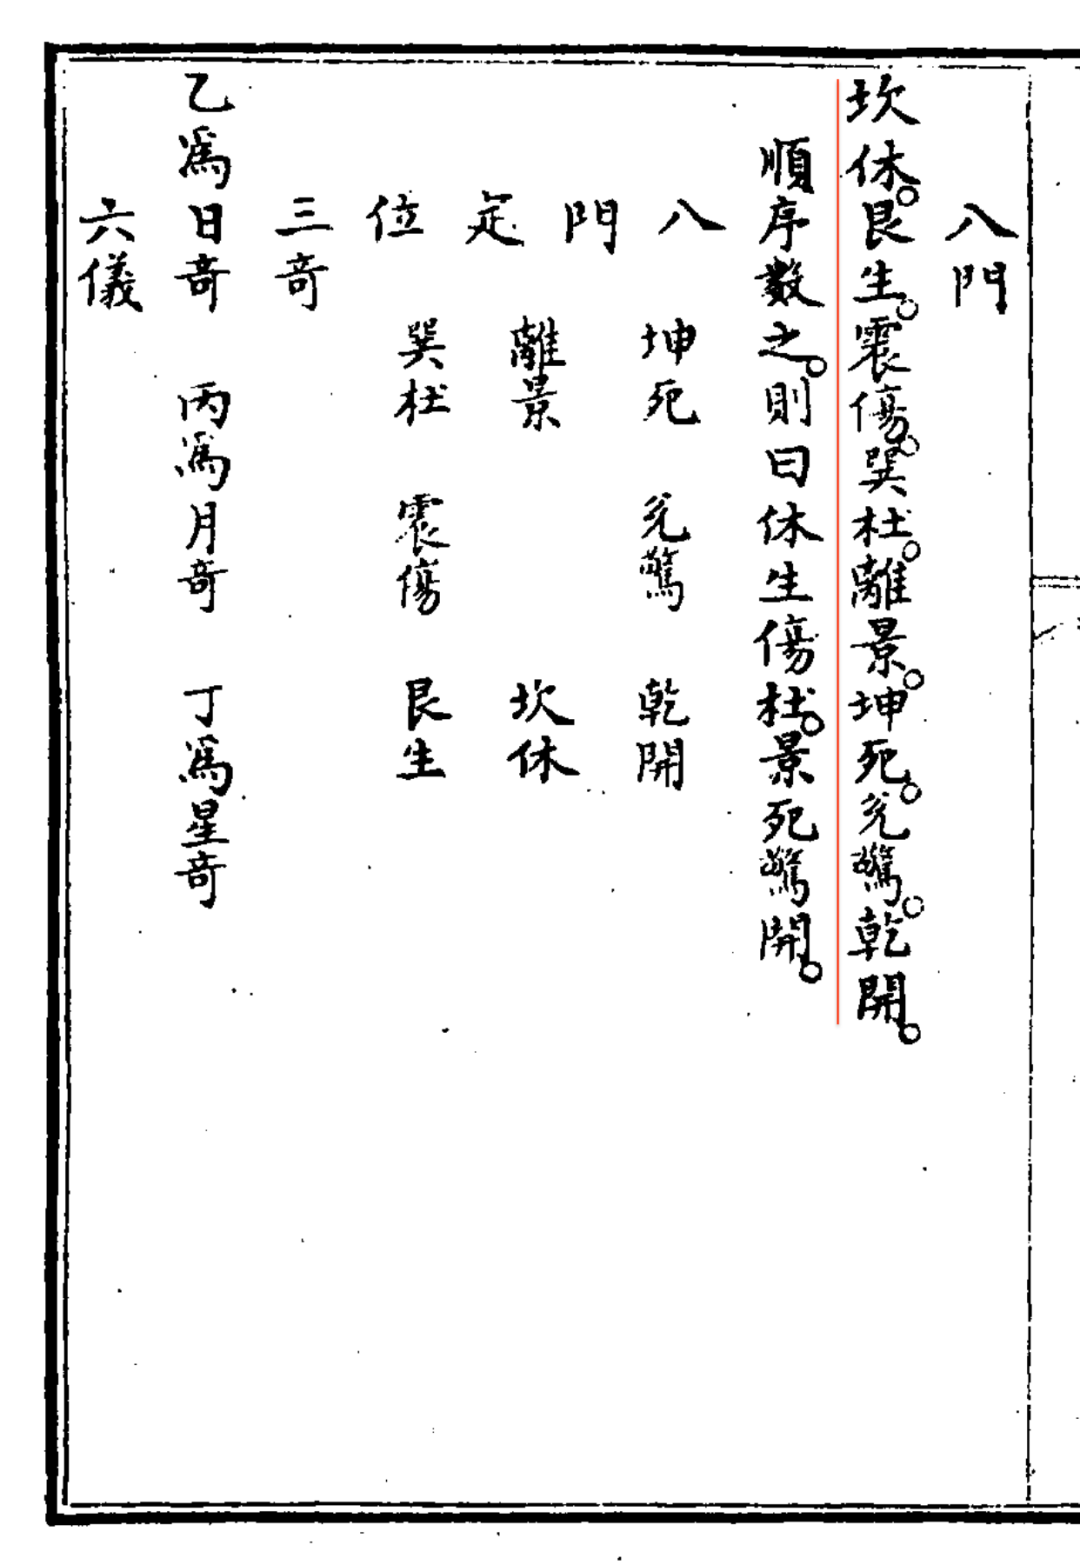 八門
坎休。艮生。震傷。巽杜。離景。坤死。兌驚。乾開。
順序數之。則曰休生傷杜。景死驚開。
八門定位
坤死 兌驚 乾開
離景 坎休
巽杜 震傷 艮生
三奇
乙為日奇 丙為月奇 丁為星奇
六儀